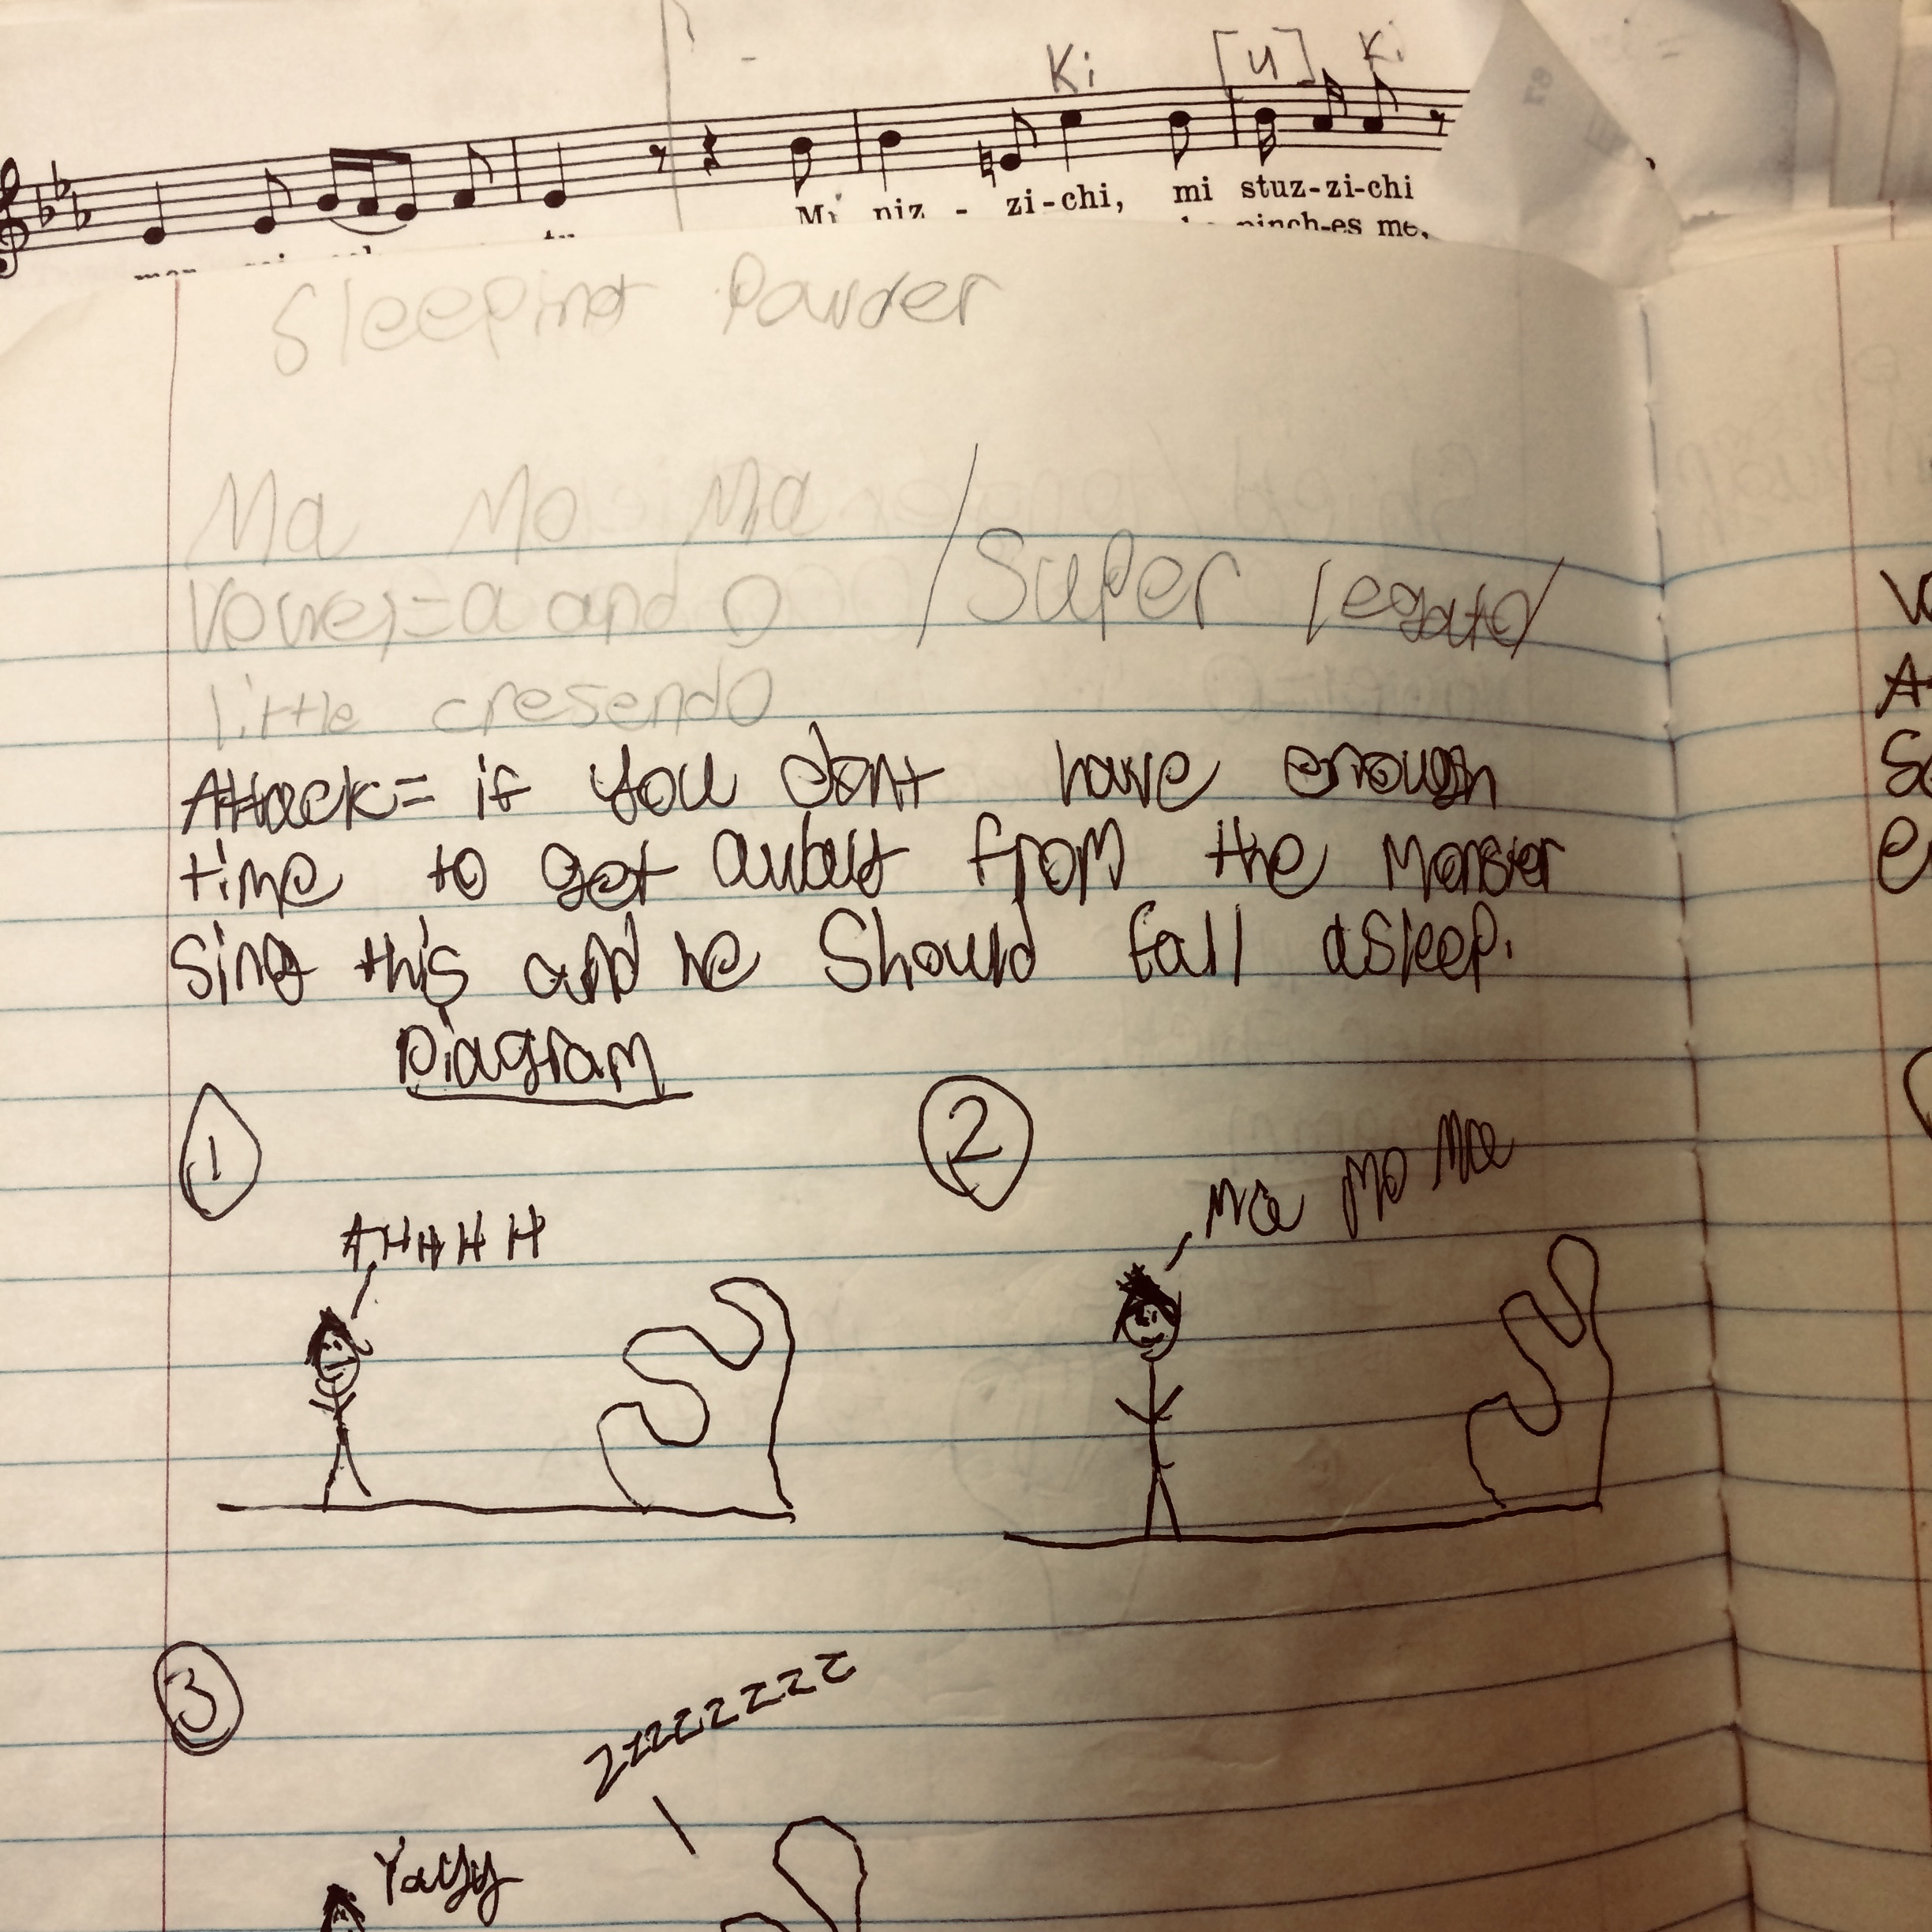 Ki [u] Ki
Mi piz - zi-chi, mi stuz-zi-chi
pinch-es me,
Sleeping Powder
Ma Mo Ma
Vowel=a and O /Super legato/
little cresendo
Attack= if you dont have enough
time to get away from the Monster
Sing this and he Should fall asleep.
Diagram
1 2
AHHHH Ma Mo Ma
3
zzzzzzzzz
Yayy